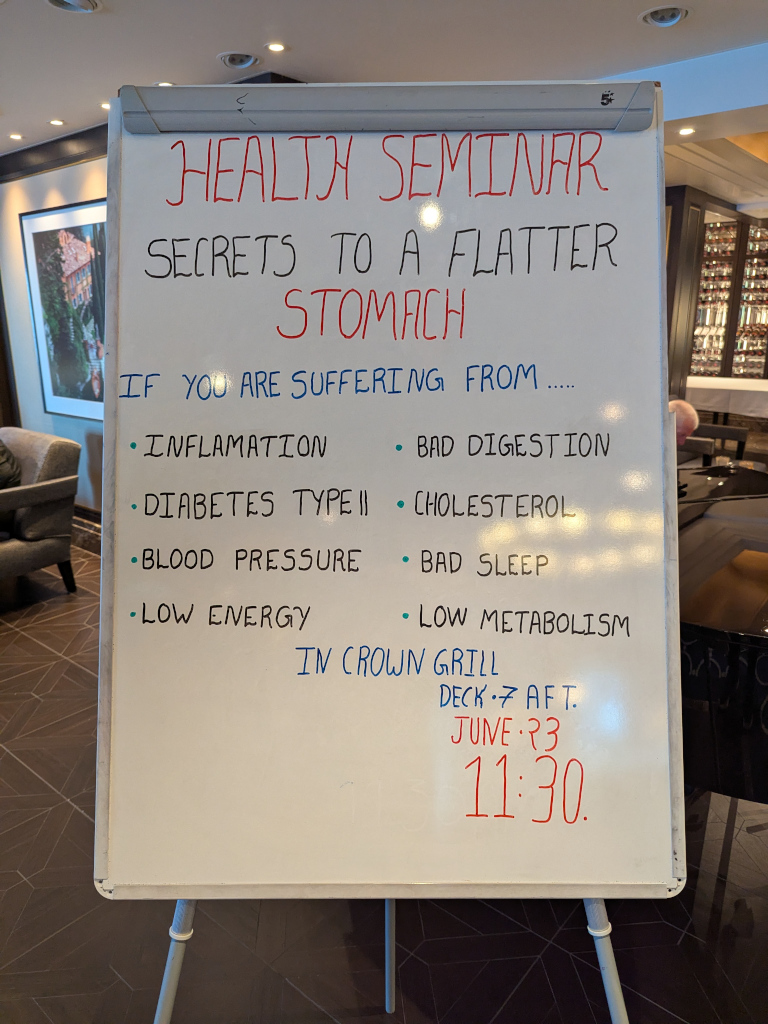 HEALTH SEMINAR
SECRETS TO A FLATTER
STOMACH
IF YOU ARE SUFFERING FROM.....
• INFLAMATION
• BAD DIGESTION
• DIABETES TYPE II
• CHOLESTEROL
• BLOOD PRESSURE
• BAD SLEEP
• LOW ENERGY
• LOW METABOLISM
IN CROWN GRILL
DECK·7 AFT.
JUNE·23
11:30.